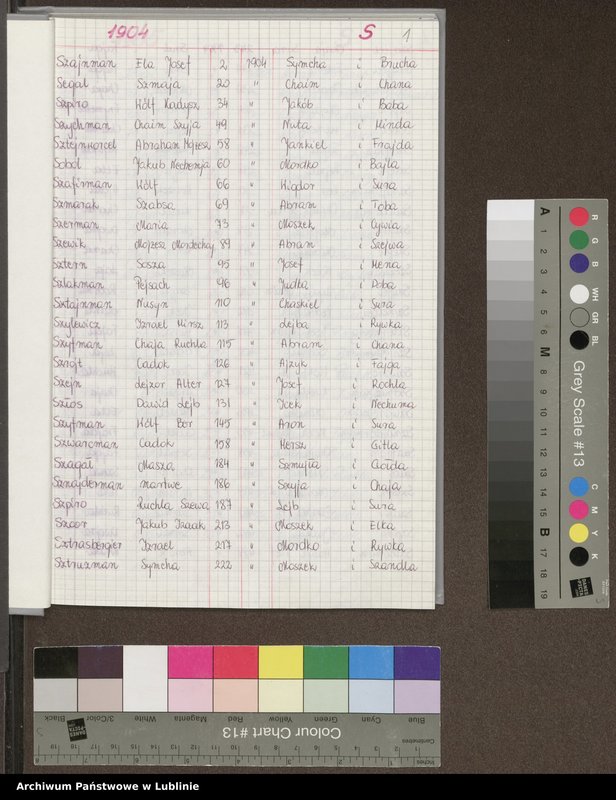 1904 S 1
Szajnman Ela Josef 2 1904 Symcha i Brucha
Segal Szmaja 20 " Chaim i Chana
Szpiro Wólf Kadysz 34 " Jakób i Baba
Szychman Chaim Szyja 49 " Nuta i Hinda
Sztejnkorcel Abraham Mojżesz 58 " Jankiel i Frajda
Sobol Jakub Nechemja 60 " Mordko i Bajla
Szafirman Wólf 66 " Wigdor i Sura
Szmarak Szabsa 69 " Abram i Toba
Szerman Maria 73 " Moszek i Cywia
Szewik Mojżesz Mordechaj 89 " Abram i Szejwa
Sztern Sosza 95 " Josef i Mena
Szlakman Pejsach 96 " Judka i Doba
Sztajnman Nusyn 110 " Chaskiel i Sura
Szylewicz Izrael Hirsz 113 " Lejba i Rywka
Szyfman Chaja Ruchla 115 " Abram i Chana
Szrojt Cadok 126 " Ajzyk i Fajga
Szejn Lejzor Alter 127 " Josef i Rochla
Szlos Dawid Lejb 131 " Icek i Nechuma
Szyfman Wólf Ber 145 " Aron i Sura
Szwarcman Cadok 158 " Hersz i Gitla
Szagal Masza 184 " Szmujla i Cloida
Sznajderman martwe 186 " Szyja i Chaja
Szpiro Ruchla Szewa 187 " Lejb i Sura
Szoor Jakub Izaak 213 " Moszek i Elka
Sztrasberger Izrael 217 " Mordko i Rywka
Sztruzman Symcha 222 " Moszek i Szandla
A 1 2 3 4 5 6 M 8 9 10 11 12 13 14 15 B 17 18 19
R G B WH GR BL
Grey Scale #13
C M Y K
Blue Cyan Green Yellow Red Magenta White 3/Color Black
Colour Chart #13
Inches Centimetres
Archiwum Państwowe w Lublinie